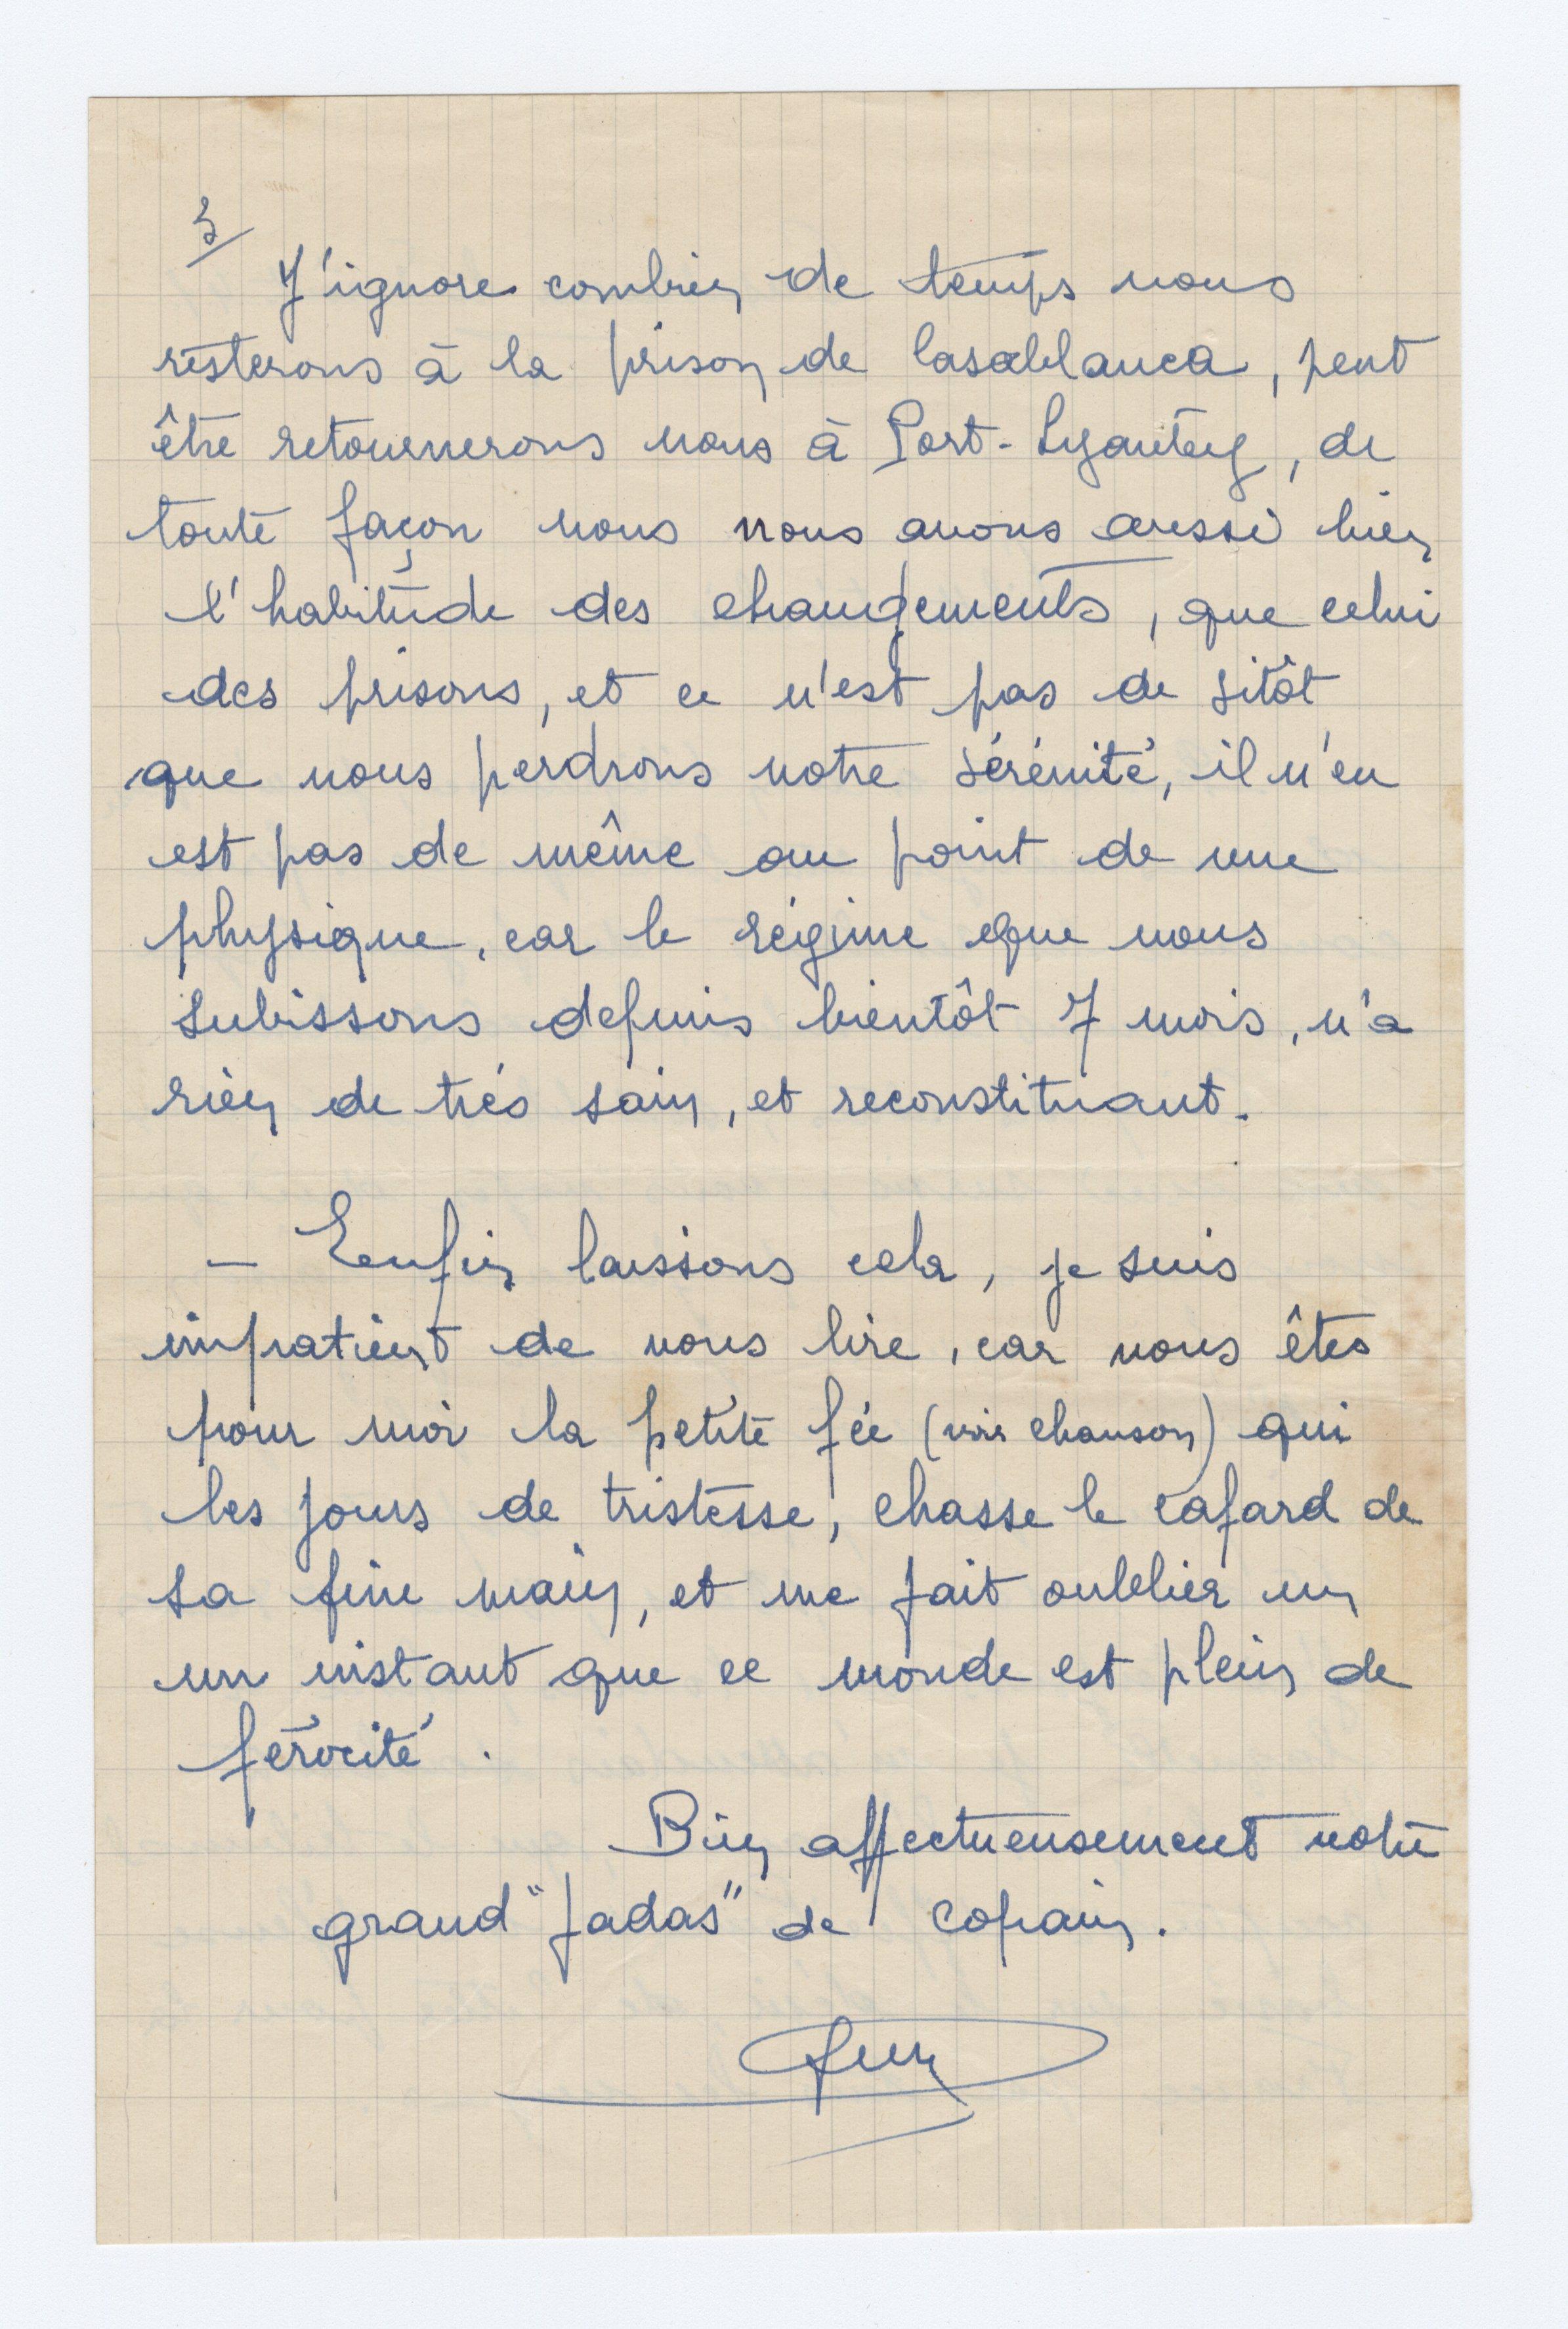 3/
J'ignore combien de temps nous
resterons à la prison de Casablanca, peut
être retournerons nous à Port-Lyautey, de
toute façon nous nous avons aussi bien
l'habitude des changements, que celui
des prisons, et ce n'est pas de sitôt
que nous perdrons notre sérénité, il n'en
est pas de même au point de vue
physique, car le régime que nous
subissons depuis bientôt 7 mois, n'a
rien de trés sain, et reconstituant.
- Enfin laissons cela, je suis
impatient de vous lire, car vous êtes
pour moi la petite fée (voir chanson) qui
les jours de tristesse, chasse le cafard de
sa fine main, et me fait oublier un
un instant que ce monde est plein de
férocité.
Bien affectueusement votre
grand "fadas" de copain.